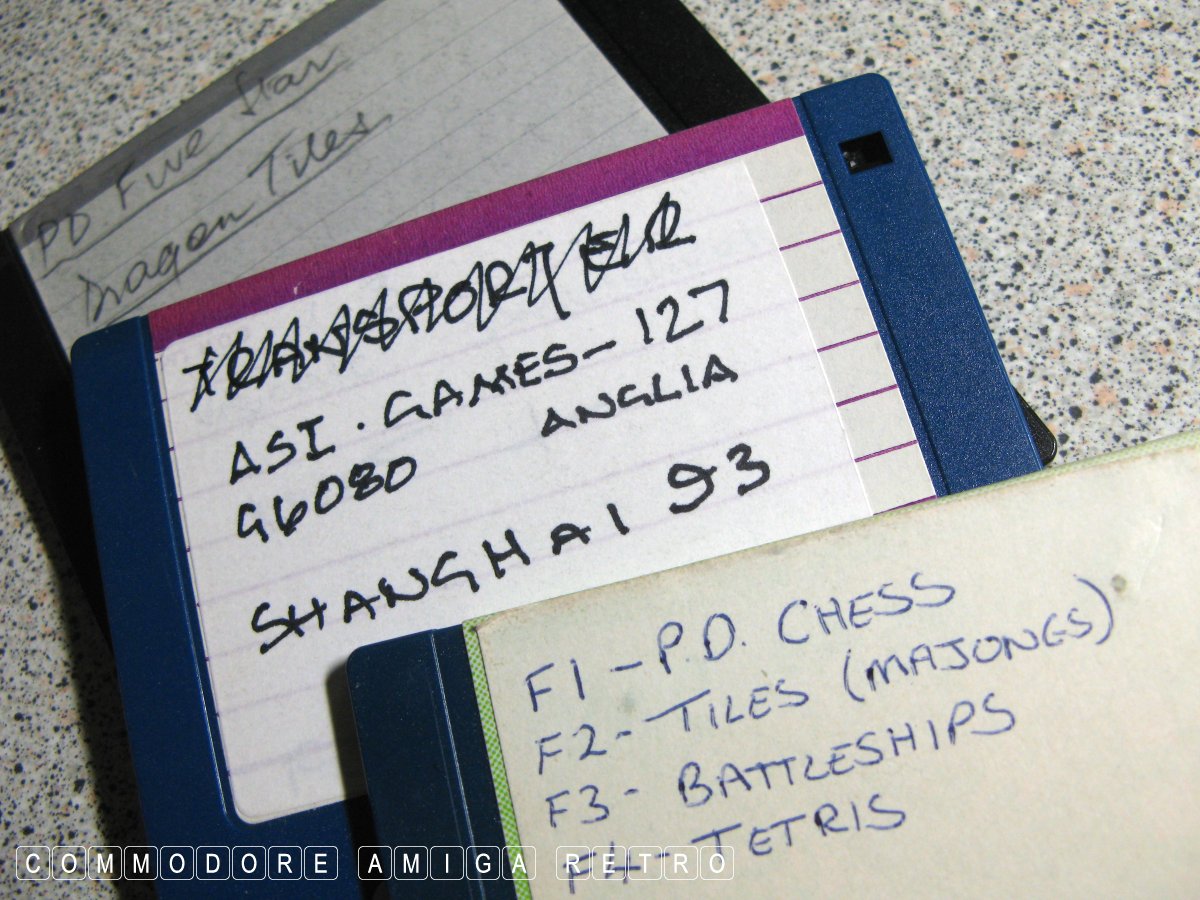 PD. Five Star
Dragon Tiles
TRANSPORTER
ASI. GAMES-127
G6080 ANGLIA
SHANGHAI 93
F1 - P.D. CHESS
F2 - TILES (MAJONGS)
F3 - BATTLESHIPS
F4 - TETRIS
COMMODORE AMIGA RETRO